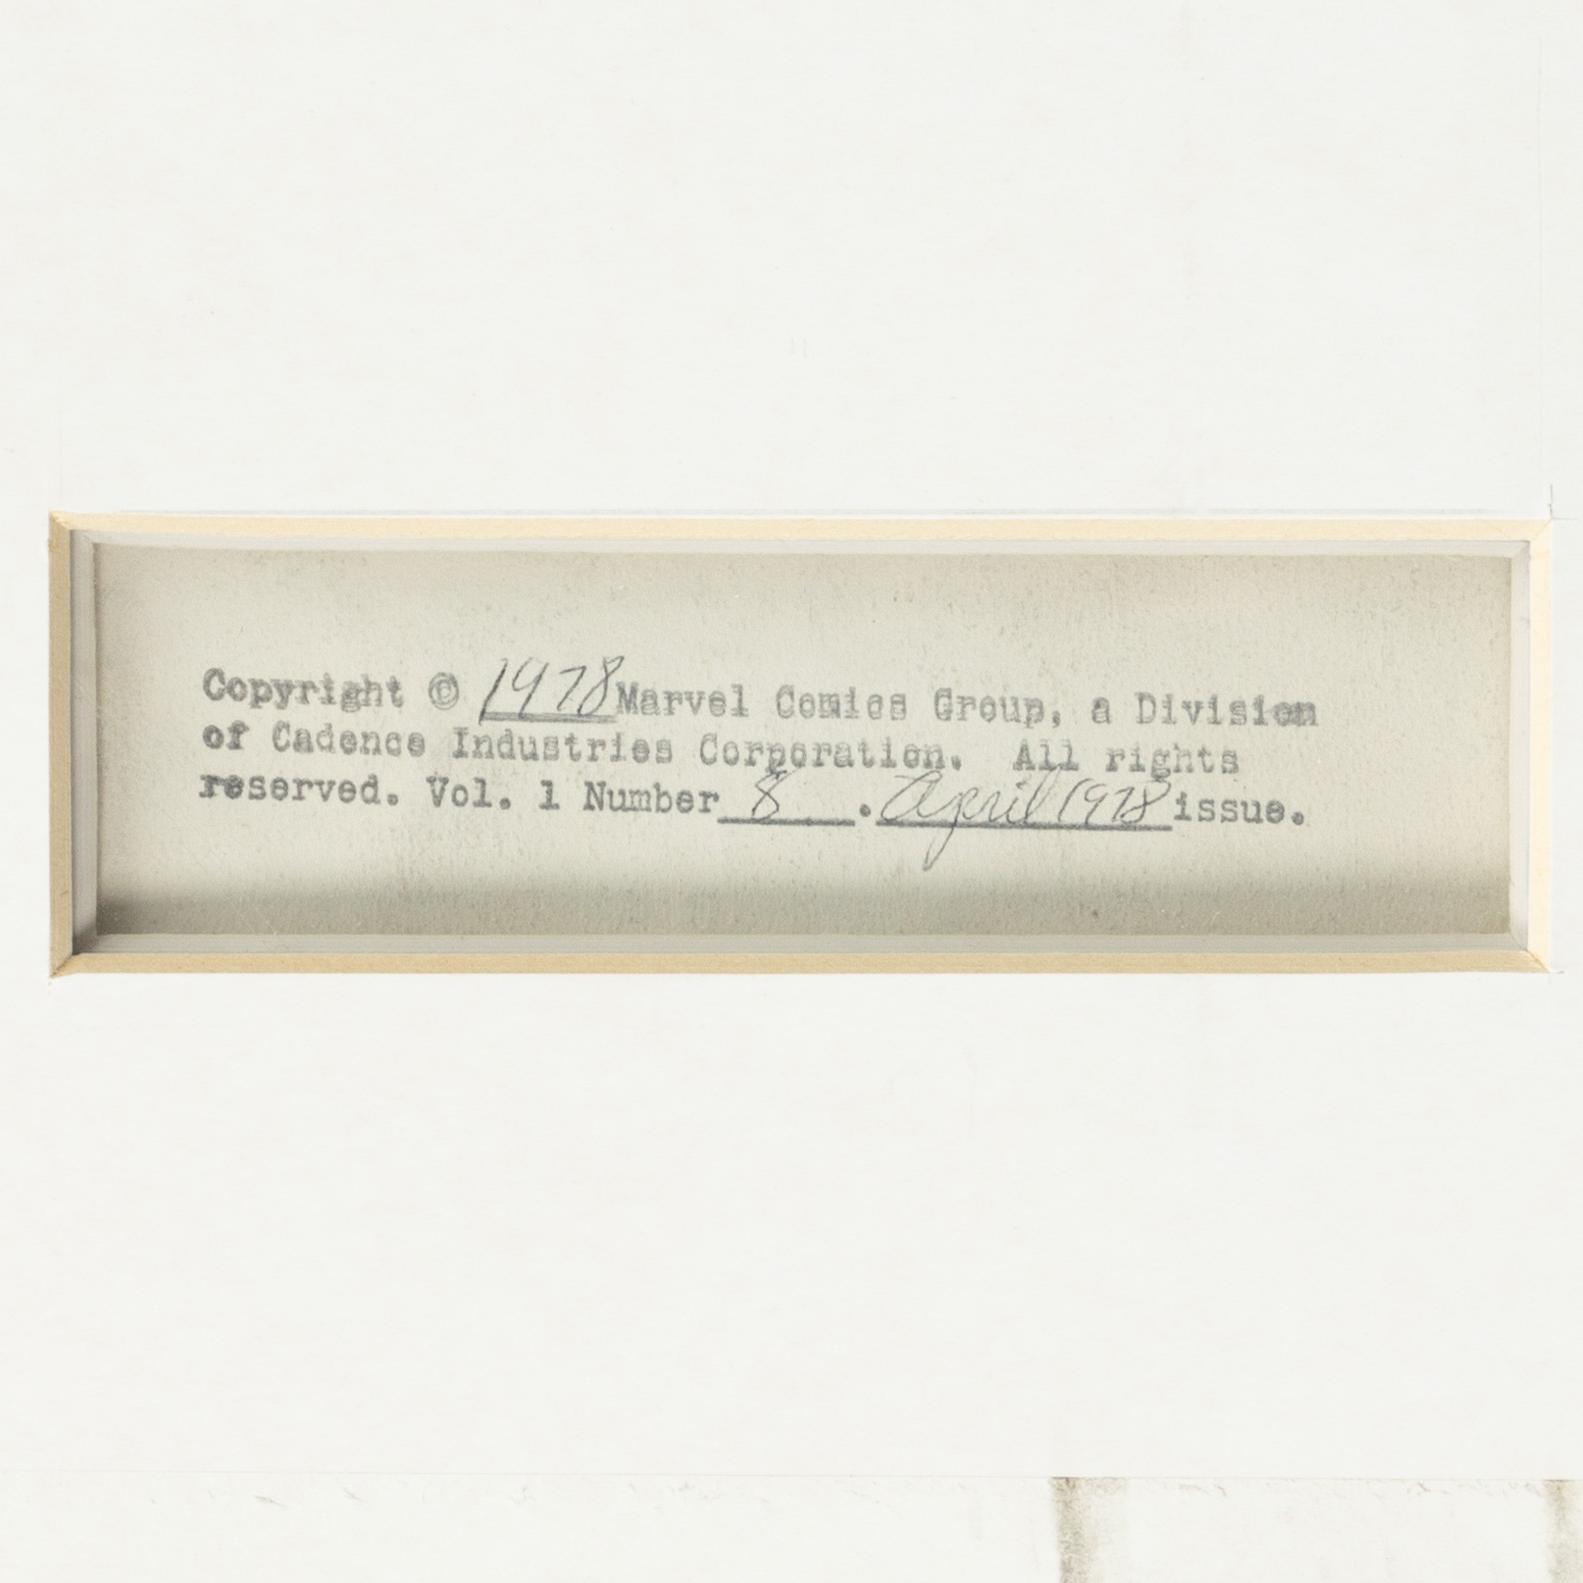 Copyright © 1978 Marvel Comics Group, a Division
of Cadence Industries Corporation. All rights
reserved. Vol. 1 Number 8 . April 1978 issue.